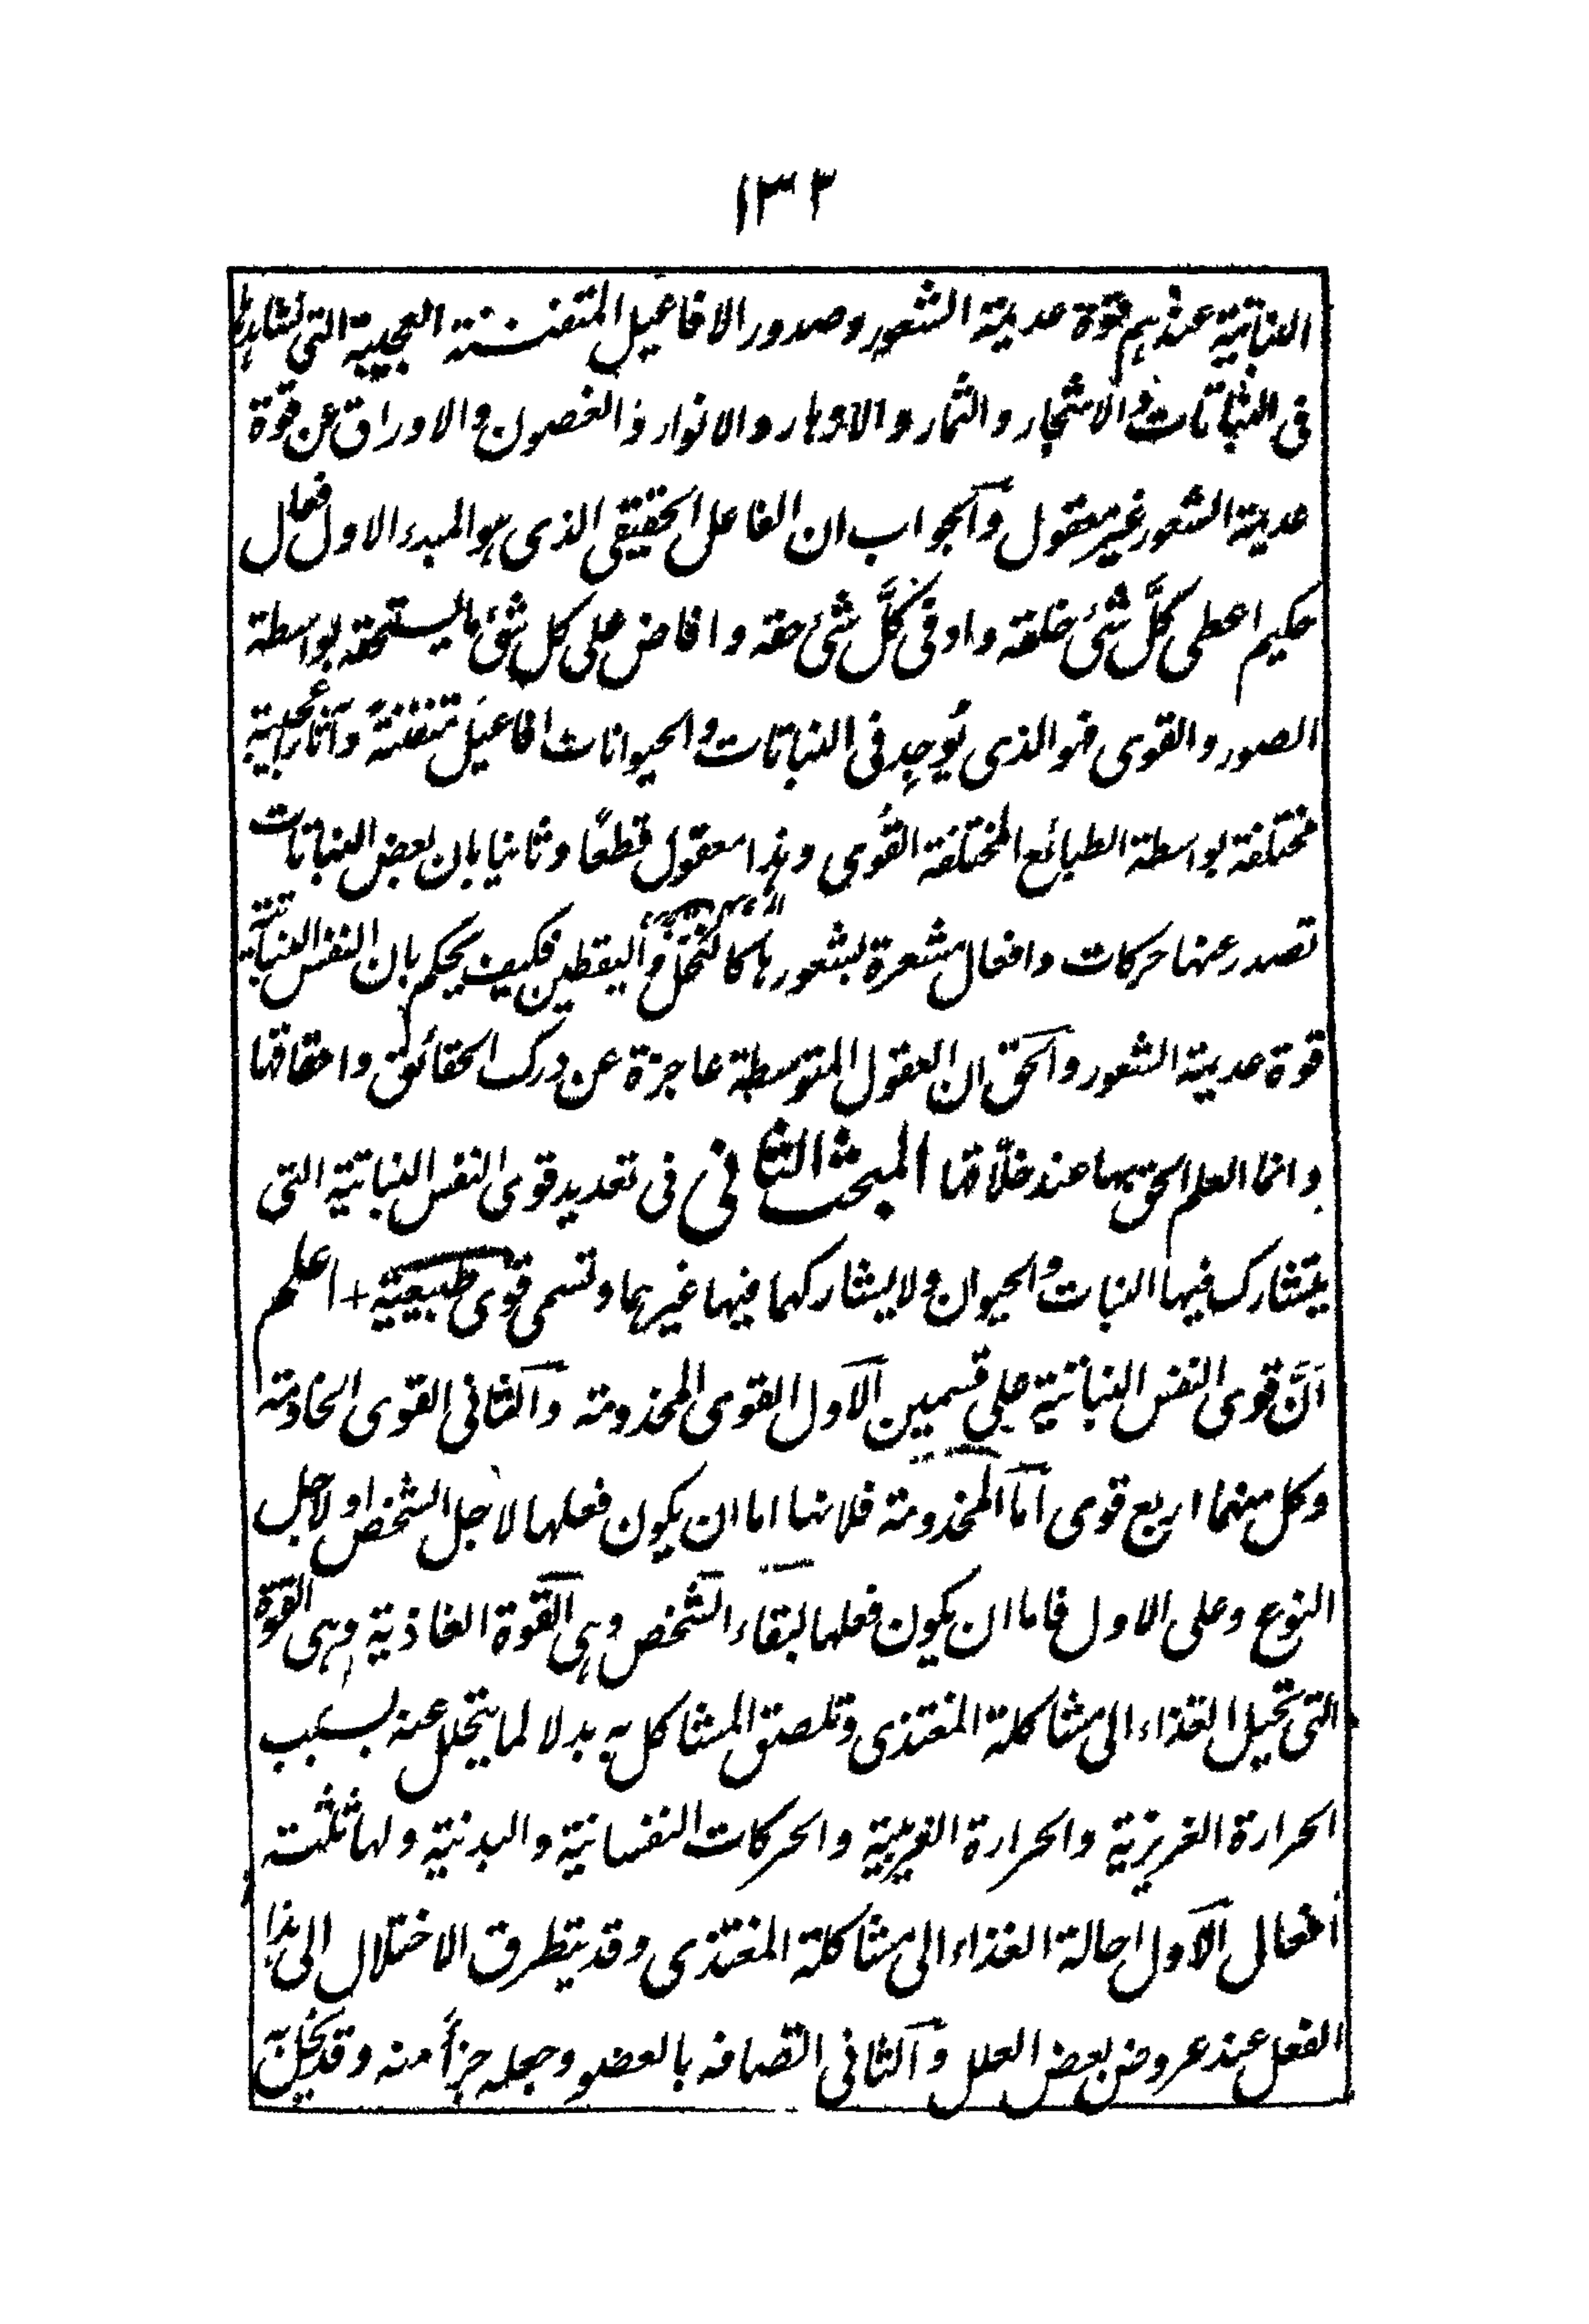 ١٣٢
النباتية عندهم قوة عديمة الشعور وصدور الافاعيل المتفننة العجيبة التى نشاهدها
فى النباتات والاشجار والثمار والازهار والانوار والغصون والاوراق عن قوة
عديمة الشعور غير معقول والجواب ان الفاعل الحقيقى الذى هو المبدء الاول فعال
حكيم اعطى كلَّ شئ خلقه واوفى كلَّ شئ حقه وافاض على كل شئ ما يستحقه بواسطة
الصور والقوى فهو الذى يُوجِد فى النباتات والحيوانات افاعيلَ متفننةً وآثاراً عجيبة
مختلفة بواسطة الطبائع المختلفة القُوى وهذا معقول قطعًا وثانيا بان بعض النباتات
تصدر عنها حركات وافعال مشعرة بشعورها كالنخل واليقطين فكيف يحكم بان النفس النباتية
قوة عديمة الشعور والحق ان العقول المتوسطة عاجزة عن درك الحقائق واحقاقها
وانما العلم الحق بها عند خلّاقها المبحث الثانى فى تعديد قوى النفس النباتية التى
يتشارك فيها النبات والحيوان ولا يشاركهما فيها غيرهما وتسمى قوى طبيعية + اعلم
انَّ قوى النفس النباتية على قسمين الاول القوى المخدومة والثانى القوى الخادمة
وكل منهما اربع قوى اما المخدومة فلانها اما ان يكون فعلها لاجل الشخص او لاجل
النوع وعلى الاول فاما ان يكون فعلها لبقاء الشخص وهى القوة الغاذية وهى القوة
التى تحيل الغذاء الى مشاكلة المغتذى وتلصق المشاكل به بدلا لما يتحلل عنه بسبب
الحرارة الغريزية والحرارة الغريبية والحركات النفسانية والبدنية ولها ثلثة
افعال الاول احالة الغذاء الى مشاكلة المغتذى وقد يتطرق الاختلال الى هذا
الفعل عند عروض بعض العلل والثانى الصاقه بالعضو وجعله جزأً منه وقد يخل به